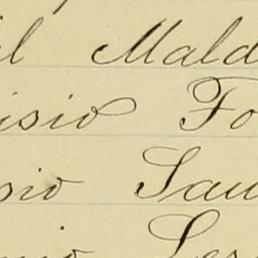 il Mald
isio Fo
sio Sau